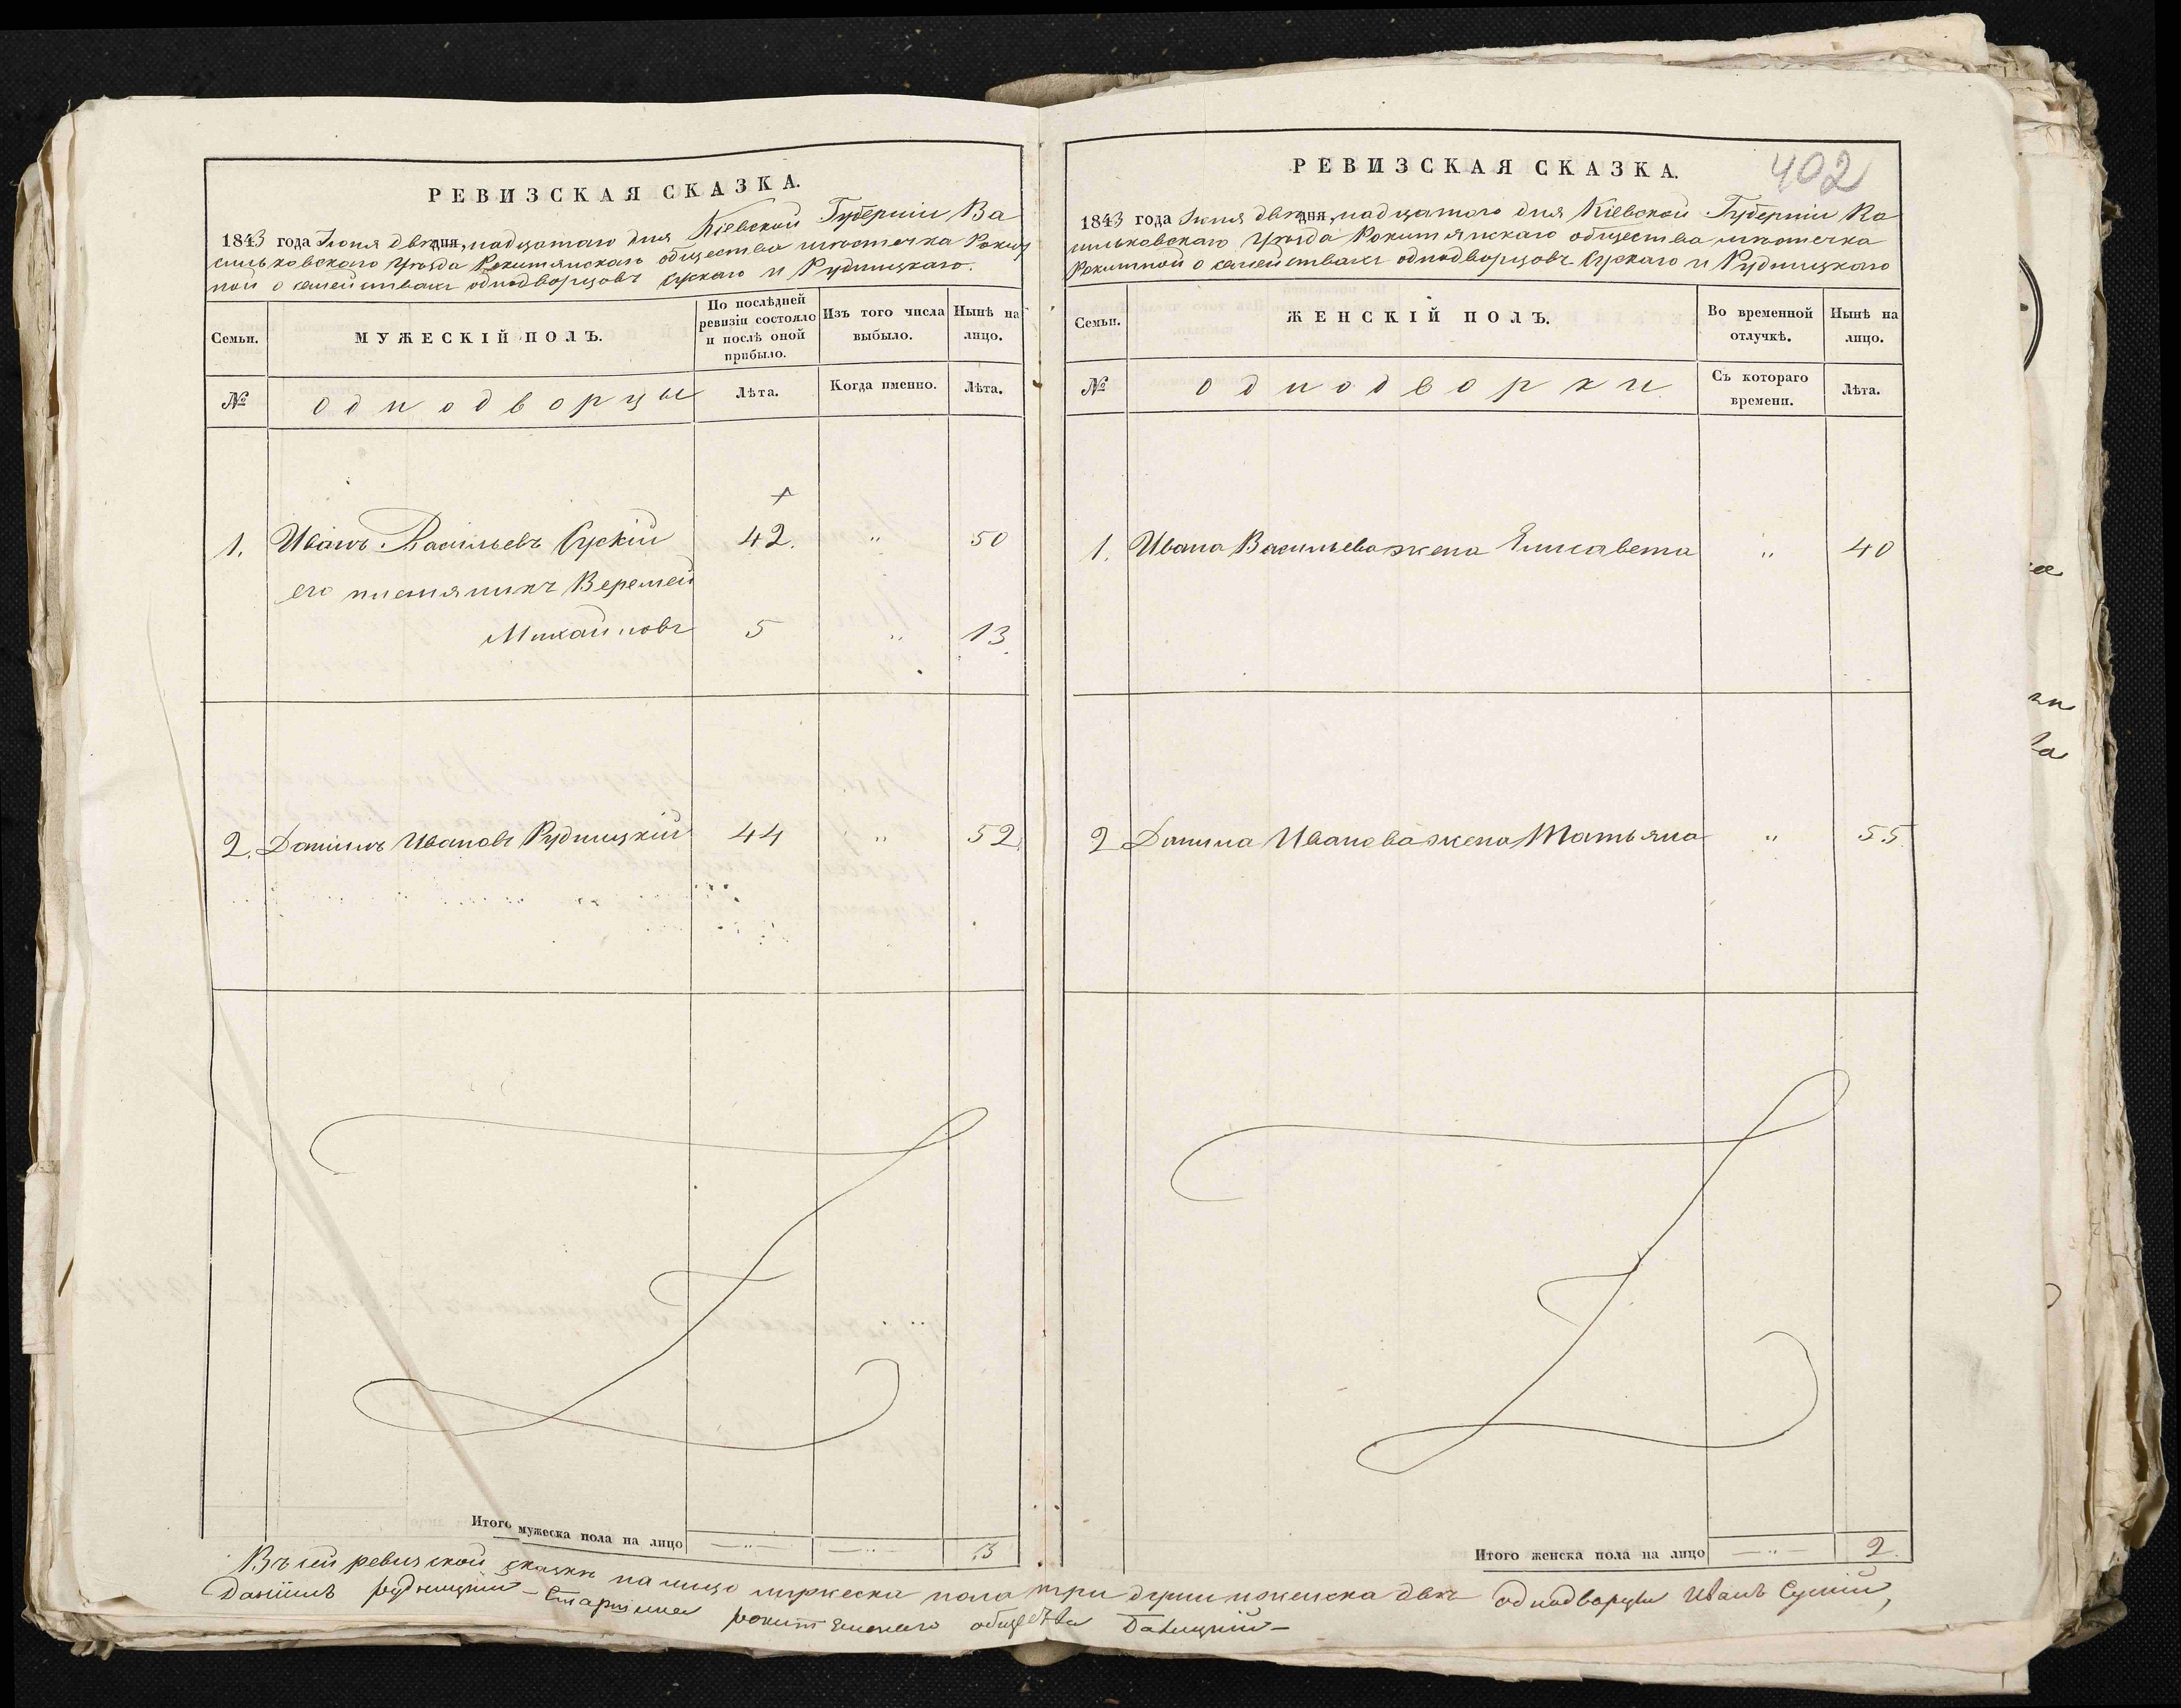 РЕВИЗСКАЯ СКАЗКА.
1843 года Іюня двѣнадцатого дня Кіевской Губерніи Ва
сильковского Уѣзда Рокитянскаго общества мѣстечка Рокит
ной о семействахъ однодворцовъ Сускаго и Рудницкаго.
Семьи.
МУЖЕСКІЙ ПОЛЪ.
По послѣдней ревизіи состояло и послѣ оной прибыло.
Изъ того числа выбыло.
Нынѣ на лицо.
№
однодворцы
Лѣта.
Когда именно.
Лѣта.
1. Иванъ Васильевъ Сускій 42. " 50
его племяникъ Веремей
Михайловъ 5 " 13.
2. Даніилъ Ивановъ Рудницкій 44 " 52.
Итого мужеска пола на лицо 3
402
РЕВИЗСКАЯ СКАЗКА.
1843 года Іюня двѣнадцатого дня Кіевской Губерніи Ва
сильковскаго Уѣзда Рокитянскаго общества мѣстечка
Рокитной о семействахъ однодворцовъ Сускаго и Рудницкаго
Семьи.
ЖЕНСКІЙ ПОЛЪ.
Во временной отлучкѣ.
Нынѣ на лицо.
№
однодворки
Съ котораго времени.
Лѣта.
1. Ивана Васильева жена Елисавета " 40
2 Данила Иванова жена Татьяна " 55.
Итого женска пола на лицо 2.
Въ сей ревизской сказкѣ на лицо мужеска пола три души женска двѣ однодворцы Иванъ Сускій,
Даніилъ Рудницкій - Старшина
общества